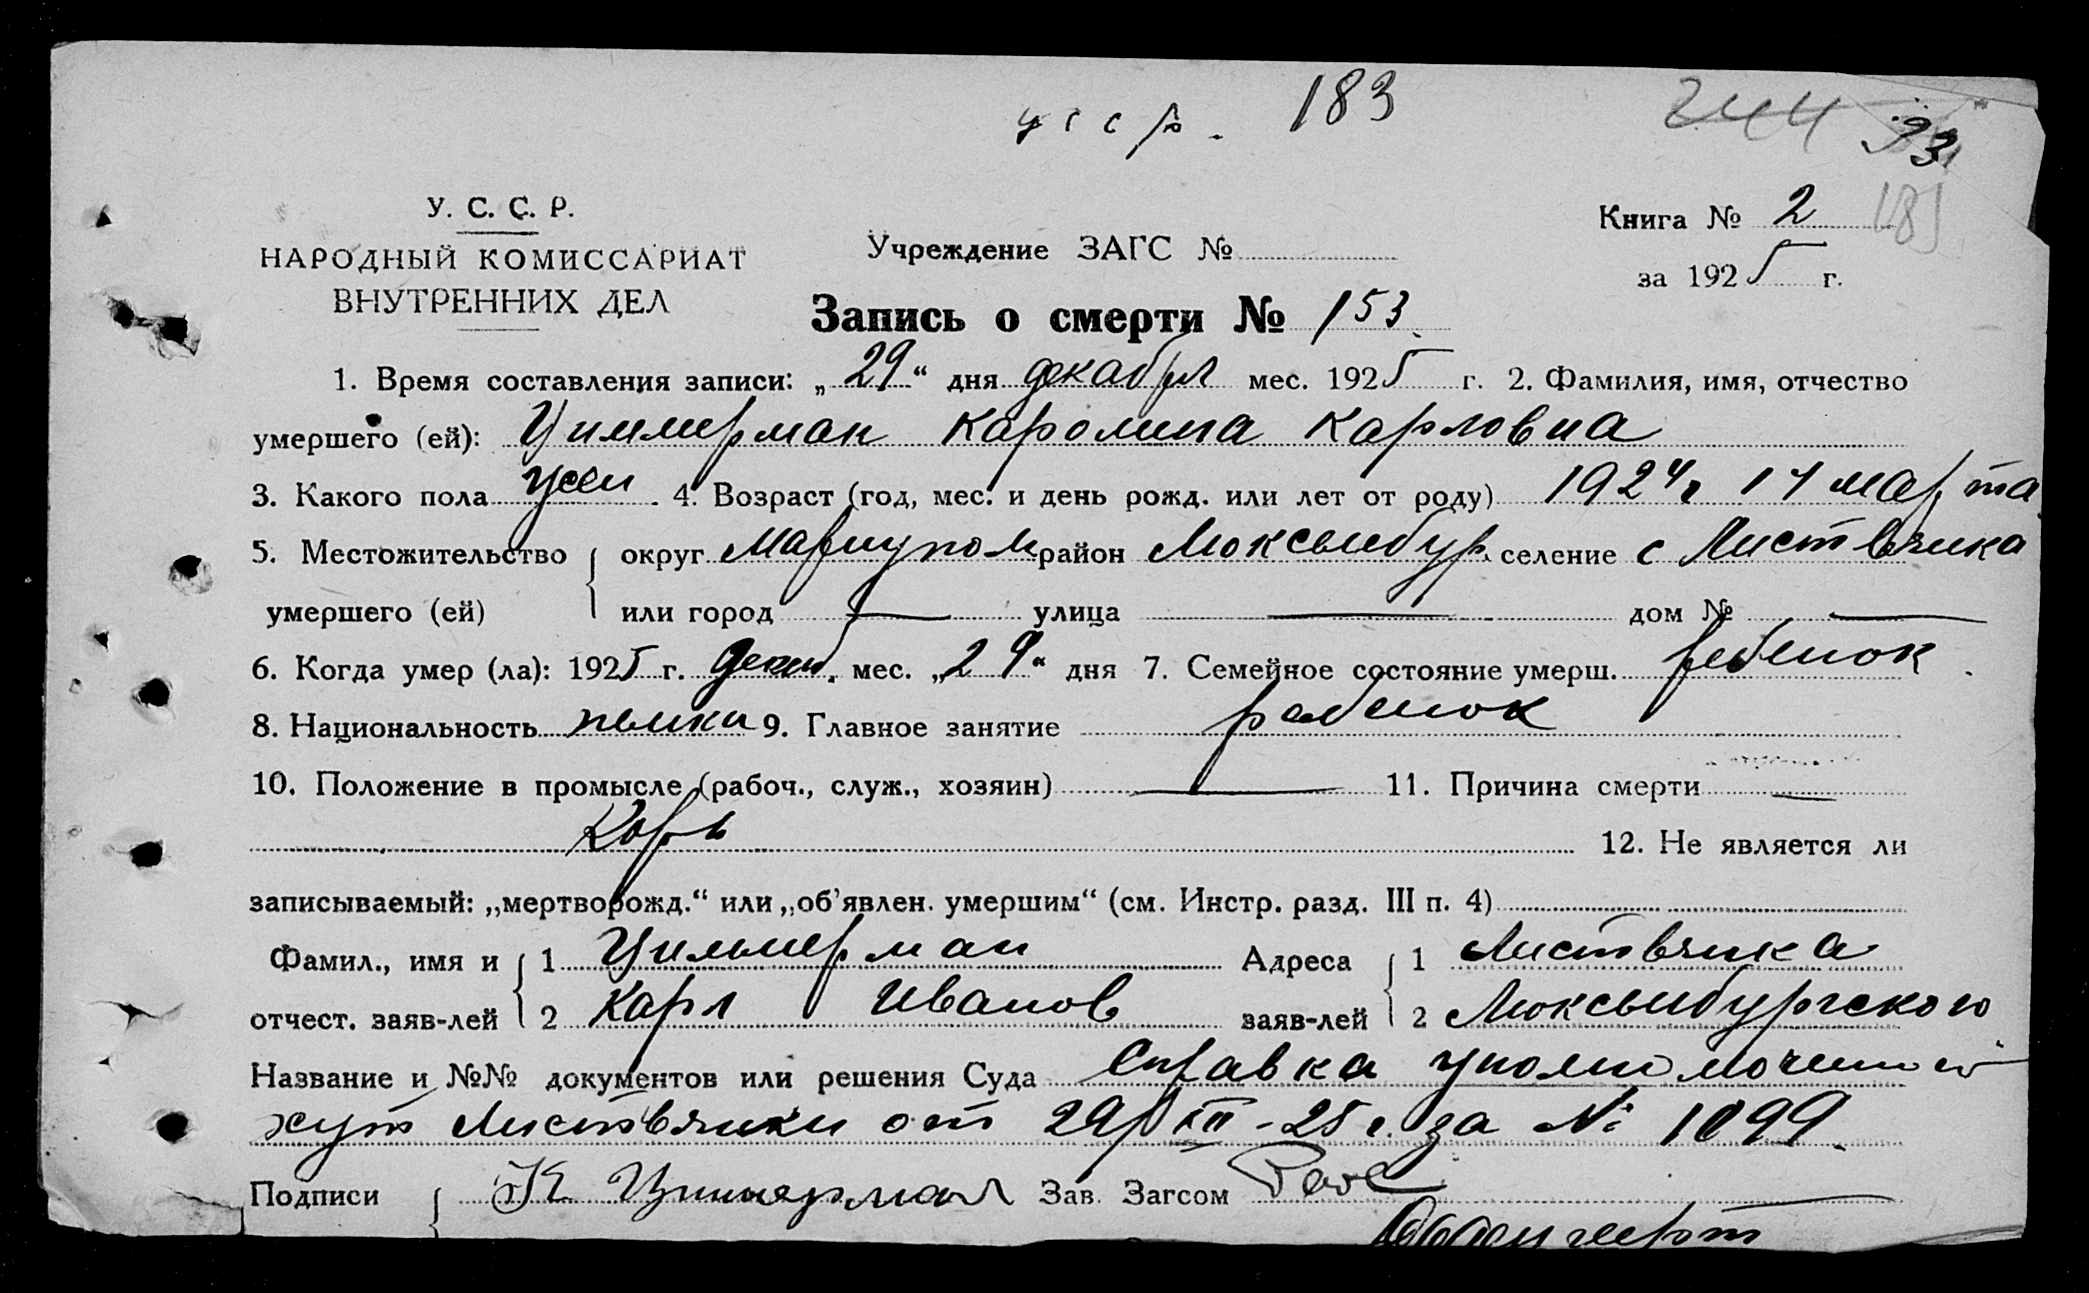 усср. 183
244 93
У. С. С. Р.
НАРОДНЫЙ КОМИССАРИАТ
ВНУТРЕННИХ ДЕЛ
Учреждение ЗАГС №
Книга № 2 183
за 1925 г.
Запись о смерти № 153
1. Время составления записи: „29“ дня декабря мес. 1925 г. 2. Фамилия, имя, отчество
умершего (ей): Циммерман Каролина Карловна
3. Какого пола жен. 4. Возраст (год, мес. и день рожд. или лет от роду) 1924 г 17 марта
5. Местожительство округ Мариупол район Люксембур. селение с Листвянка
умершего (ей) или город — улица — дом № —
6. Когда умер (ла): 1925 г. декаб. мес. „29“ дня 7. Семейное состояние умерш. ребенок
8. Национальность немка 9. Главное занятие ребенок
10. Положение в промысле (рабоч., служ., хозяин) — 11. Причина смерти —
Корь 12. Не является ли
записываемый: „мертворожд.“ или „об’явлен. умершим“ (см. Инстр. разд. III п. 4)
Фамил., имя и 1 Циммерман Адреса 1 Листвянка
отчест. заяв-лей 2 Карл Иванов заяв-лей 2 Люксембургского
Название и №№ документов или решения Суда Справка уполномоченного
хут Листвянки от 29/XII-25 г. за № 1099.
Подписи К Циммерман Зав. Загсом